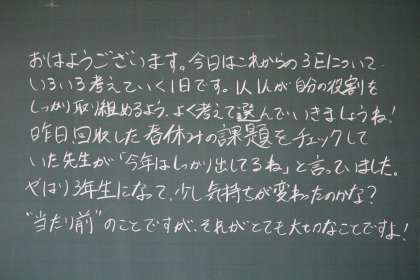 おはようございます。今日はこれからの3Eについて
いろいろ考えていく1日です。1人1人が自分の役割を
しっかり取り組めるよう、よく考えて選んでいきましょうね!
昨日回収した春休みの課題をチェックして
いた先生が「今年はしっかり出してるね」と言っていました。
やはり3年生になって、少し気持ちが変わったのかな?
"当たり前"のことですが、それがとても大切なことですよ!